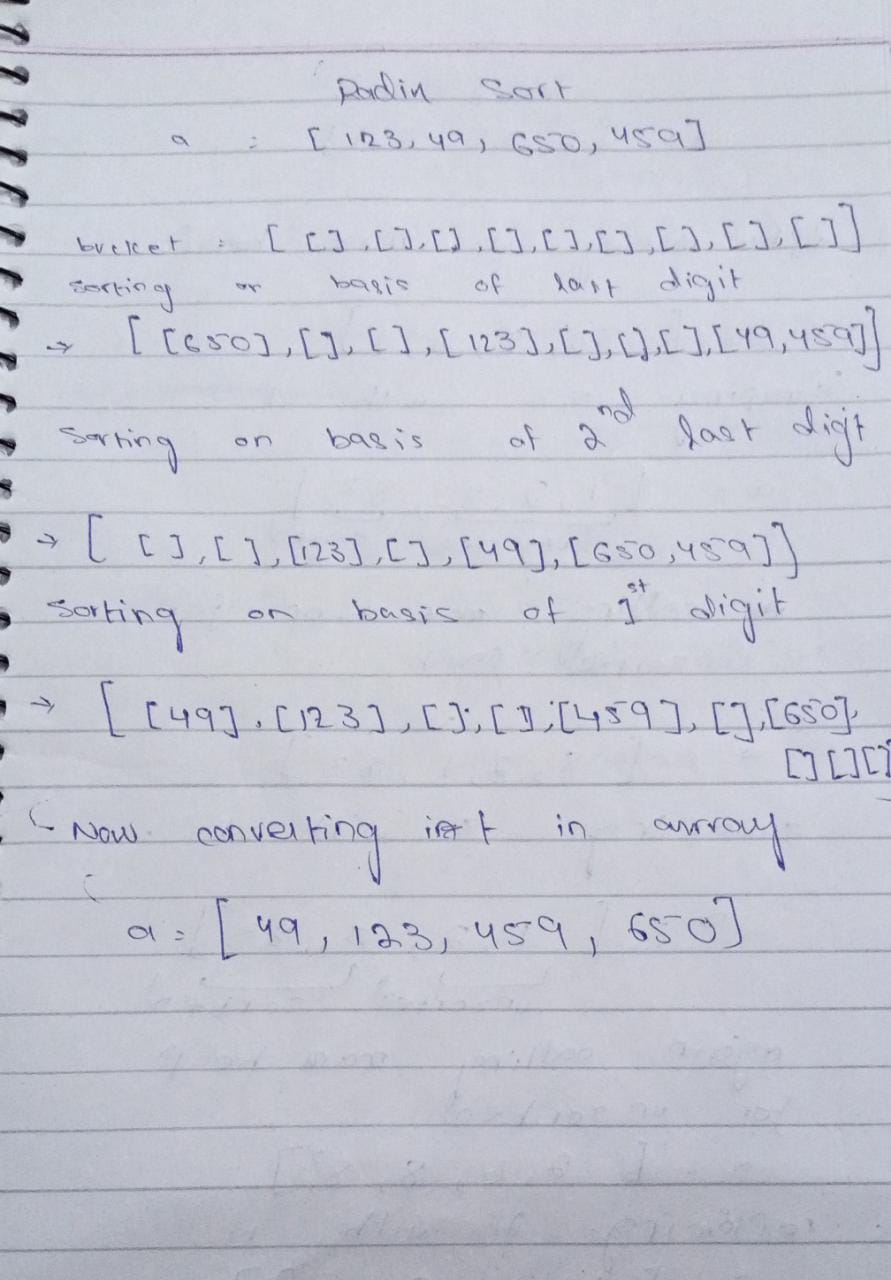 Radix Sort
a : [ 123, 49, 650, 459]
bucket : [ [],[],[],[],[],[],[],[],[]]
sorting on basis of last digit
→ [ [650], [], [], [123], [], [], [], [49,459]]
Sorting on basis of 2nd last digit
→ [ [], [], [123], [], [49], [650,459]]
Sorting on basis of 1st digit
→ [ [49], [123], [], [], [459], [], [650],
[] [] []
Now converting in array
a = [ 49, 123, 459, 650]